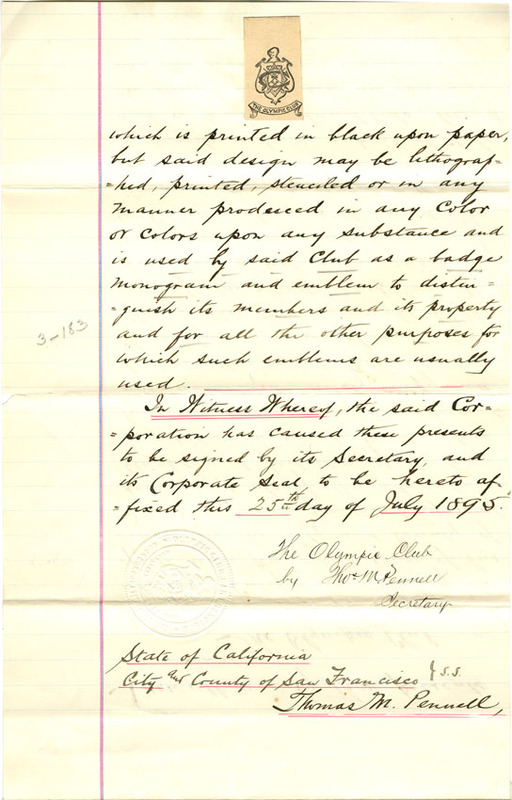 THE OLYMPIC CLUB
which is printed in black upon paper,
but said design may be lithograp-
-hed, printed, stenciled or in any
manner produced in any Color
or Colors upon any substance and
is used by said Club as a badge
monogram and emblem to distin-
-guish its members and its property
and for all the other purposes for
which such emblems are usually
used.
3-183
In Witness Whereof, the said Cor-
-poration has caused these presents
to be signed by its Secretary, and
its Corporate Seal, to be hereto af-
-fixed this 25th day of July 1895.
The Olympic Club
by Thos M. Pennell
Secretary
State of California
City and County of San Francisco } S.S.
Thomas M. Pennell,